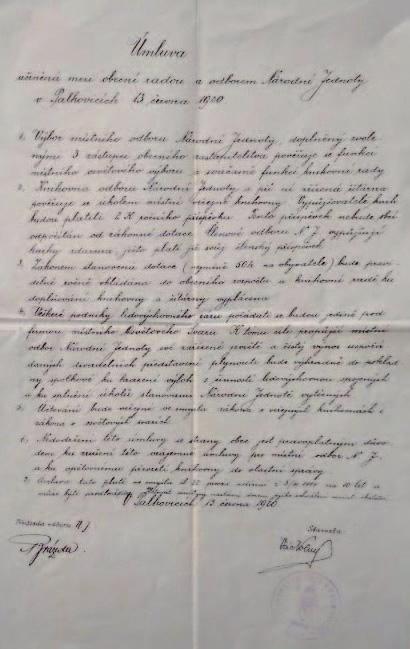 Úmluva
učiněná mezi obecní radou a odborem Národní Jednoty
v Palkovicích 13 června 1920
1. Výbor místního odboru Národní Jednoty, doplněný zvole
nými 3 zástupci obecního zastupitelstva pověřuje se funkcí
místního osvětového výboru a současně funkcí knihovní rady
2. Knihovna odboru Národní Jednoty a při ní zřízená čítárna
pověřuje se úkolem místní veřejné knihovny. Vypůjčovatelé knih
budou platiti 2 K ročního příspěvku. Tento příspěvek nebude
odpočítán od zákonné dotace. Členové odboru N. J. vypůjčují
knihy zdarma, ježto platí již svůj členský příspěvek
3. Zákonem stanovená dotace (nyní 50 h na obyvatele) bude pravi
delně ročně vkládána do obecního rozpočtu a knihovní radě ku
doplňování knihovny a čítárny vyplácena
4. Veškeré podniky lidovýchovného rázu pořádati se budou jedině pod
firmou místního Osvětového Svazu. K tomu cíli propůjčí místní
odbor Národní Jednoty své zařízení a čistý výnos
divadelních představení plynouti bude výhradně do poklad
ny ku hrazení výloh s činností lidovýchovnou spojených
a ku splnění úkolů stanovami Národní Jednotě vytčených
5. Účtování bude veřejné ve smyslu zákona o veřejných knihovnách i
zákona o
6. Nedodržení této úmluvy se strany obce jest právoplatným důvo
dem ku zrušení této vzájemné úmluvy pro místní odbor N. J.
a ku opětnému převzetí knihovny do vlastní správy
7. Úmluva tato platí na 10 let a
může býti
V Palkovicích 13 června 1920.
Předseda odboru N. J.
Starosta